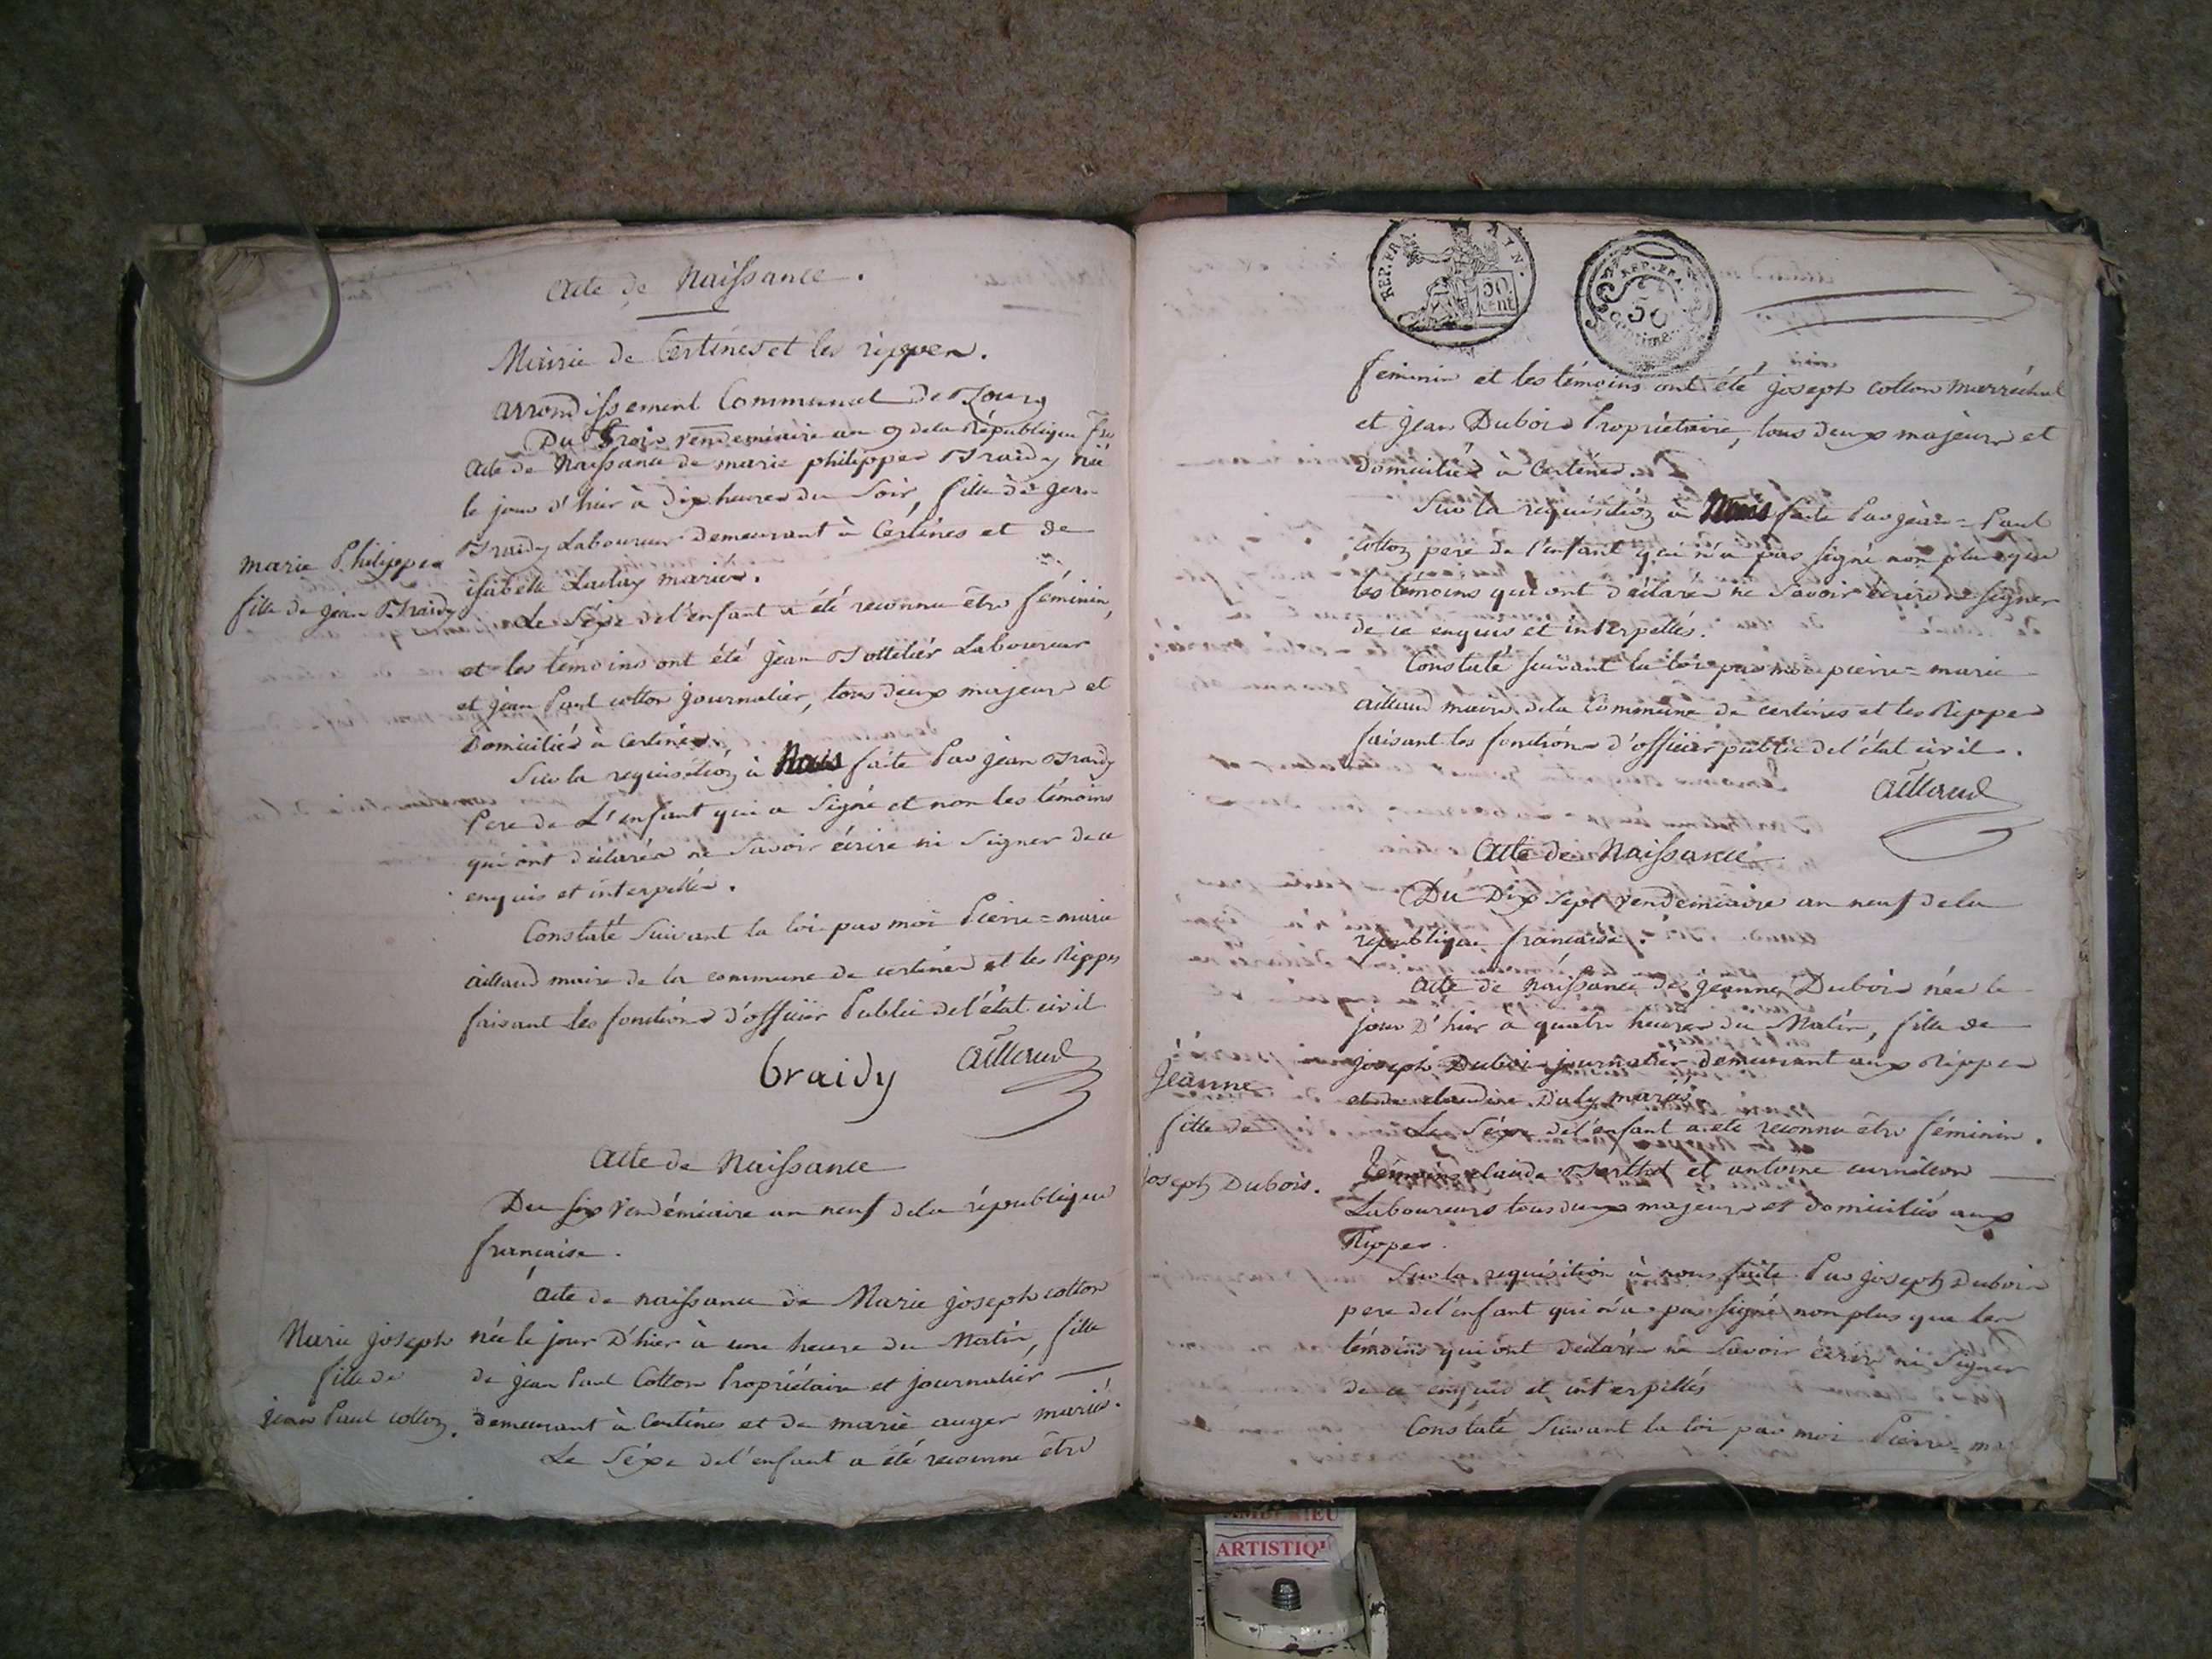 Acte de Naissance.
Mairie de Certines et les rippes.
arrondissement Communal de Bourg
Du trois vendemiaire an 9 de la République
Acte de Naissance de marie philippes Braidy née
le jour d'hier à dix heures du soir, fille de jean
Braidy Laboureur demeurant à Certines et de
isabelle mariés.
marie Philippes
fille de jean Braidy
Le Séxe de l'enfant a été reconnu être féminin,
et les témoins ont été jean Bottelier Laboureur
et jean Paul cotton journalier, tous deux majeurs et
Domiciliés à Certines.
Sur la requisition à Nous faite Par jean Braidy
Pere de L'enfant qui a Signé et non les témoins
qui ont déclarés ne Savoir écrire ni Signer de ce
enquis et interpellés.
Constaté Suivant la loi par moi Pierre=marie
aillaud maire de la commune de certines et les Rippes
faisant les fonctions d'officier Public de l'état civil
braidy aillaud
Acte de Naissance
Du six vendémiaire an neuf de la république
française.
Acte de naissance de Marie joseph cotton
née le jour D'hier à une heure du Matin, fille
de jean Paul Cotton Propriétaire et journalier
demeurant à Certines et de marie auger mariés.
Marie joseph
fille de
jean Paul cotton.
Le Séxe de l'enfant a été reconnu être
REP. FRA.
50
cent
REP. FRA.
50
centime
féminin et les témoins ont été joseph cotton marréchal
et jean Dubois Propriétaire, tous deux majeurs et
domiciliés à Certines.
Sur la requisition à Nous faite Par jean=Paul
cotton pere de l'enfant qui n'a pas signé non plus que
les témoins qui ont déclarés ne Savoir écrire ni Signer
de ce enquis et interpellés.
Constaté suivant la loi par moi pierre=marie
aillaud maire de la Commune de certines et les Rippes
faisant les fonctions d'officier public de l'état civil.
aillaud
Acte de Naissance
Du Dix Sept vendemiaire an neuf de la
republique française.
Acte de naissance de jeanne Dubois née le
jour D'hier a quatre heures du Matin, fille de
joseph Dubois journalier demeurant aux Rippes
et de claudine Duly mariés
Jeanne
fille de
joseph Dubois.
Le Séxe de l'enfant a été reconnu être féminin.
Témoins claude Berthet et antoine
Laboureurs tous deux majeurs et domiciliés aux
Rippes.
Sur la requisition à nous faite Par joseph Dubois
pere de l'enfant qui n'a pas signé non plus que les
témoins qui ont déclarés ne Savoir écrire ni Signer
de ce enquis et interpellés
Constaté Suivant la loi par moi Pierre=ma
ARTISTIQ